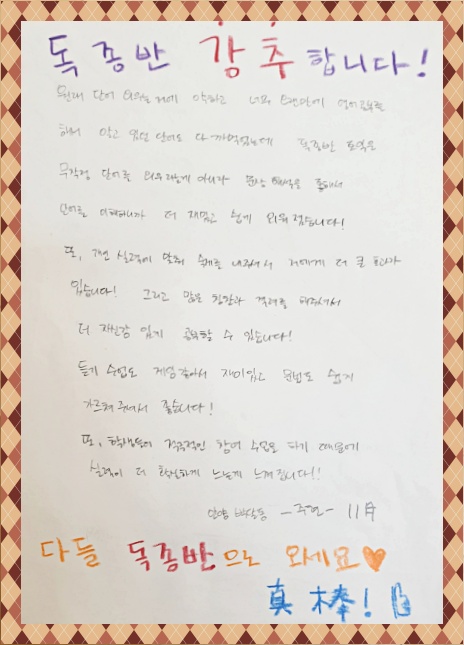 독종반 강추합니다!
원래 단어 외우는거에 약하고 너무 오랜만에 언어공부를
해서 알고 있던 단어도 다 까먹었는데 독종반 수업은
무작정 단어를 외우라는게 아니라 문장 해석을 통해서
단어를 이해하니까 더 재밌고 쉽게 외워졌습니다!
또, 개인 실력에 맞춰 숙제를 내주셔서 저에게 더 큰 효과가
있습니다! 그리고 많은 칭찬과 격려를 해주셔서
더 자신감 있게 공부할 수 있습니다!
듣기 수업도 게임같아서 재미있고 문법도 쉽게
가르쳐 주셔서 좋습니다!
또, 학생들이 적극적인 참여 수업을 하기 때문에
실력이 더 확실하게 느는게 느껴집니다!
-주연- 11月
다들 독종반으로 오세요
真棒!